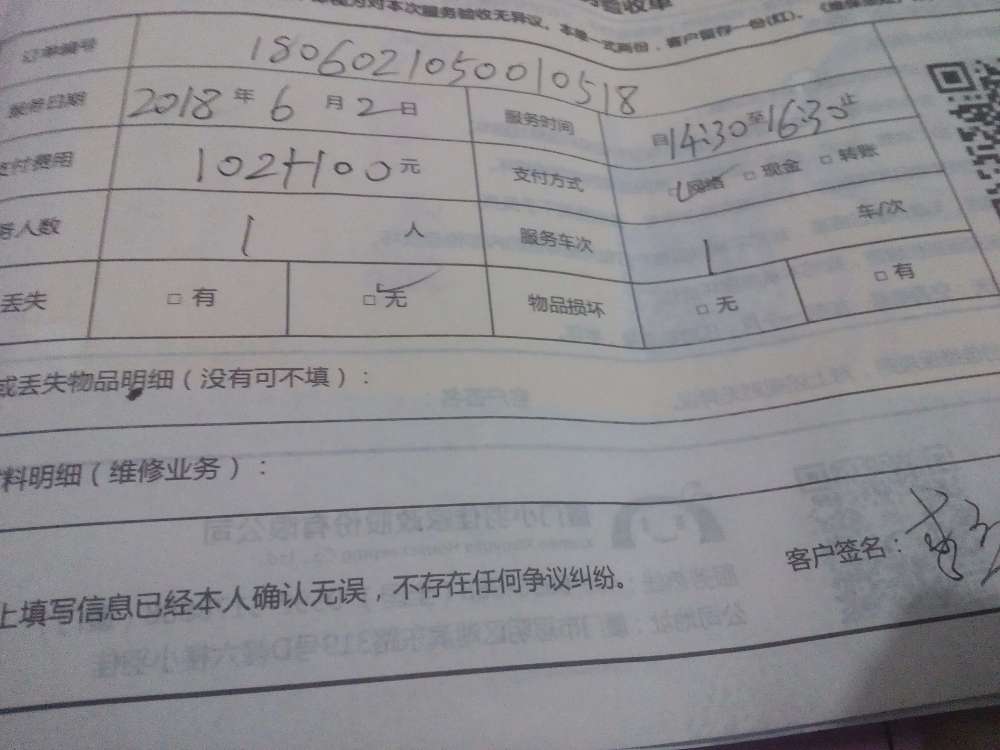 验收单
视为对本次服务验收无异议。本单一式两份，客户留存一份(红)。
订单编号 1806021050010518
服务日期 2018年6月2日 服务时间 自14:30至16:30止
支付费用 102+100元 支付方式 □网络 □现金 □转账
务人数 1人 服务车次 1车/次
丢失 □有 □无 物品损坏 □无 □有
或丢失物品明细（没有可不填）：
料明细（维修业务）：
客户签名：
上填写信息已经本人确认无误，不存在任何争议纠纷。